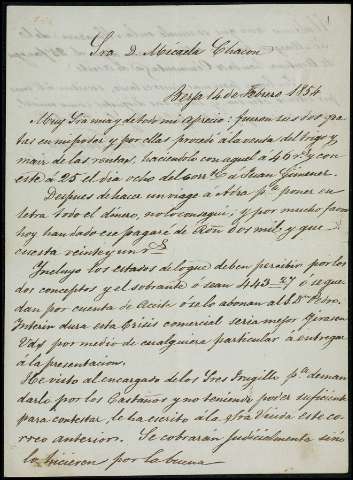 Sra. D. Micaela Chacon
Berja 14 de Febrero 1854
Muy Sra mia y de todo mi aprecio: fueron sus dos gra
tas en mi poder y por ellas procedí a la venta del trigo y
maiz de las rentas, haciendolo con aquel a 46 rs. y con
este a 25 el dia ocho del corrte. a Juan Gimenez.
Despues de hacer un viage a Adra pa. poner en
letra todo el dinero, no lo consegui, y por mucho favor
hoy han dado ese pagaré de Rón dos mil, y que
cuesta veinte y un rs
Incluyo los estados de lo que deben percibir por los
dos conceptos y el sobrante ó sean 443..27 ó se que
dan por cuenta de Aceite ó se lo abonan al Sr. Dn. Pedro.
Interin dura esta Crisis comercial seria mejor girasen
Vds. por medio de cualquiera particular a entregar
á la presentacion.
He visto al encargado de los Sres Trugillo pa. deman
darlo por los Castaños y no teniendo poder suficiente
para contestar, le ha escrito á la Sra Viuda este co
rreo anterior. Se cobrarán judicialmente sino
lo hicieren por la buena